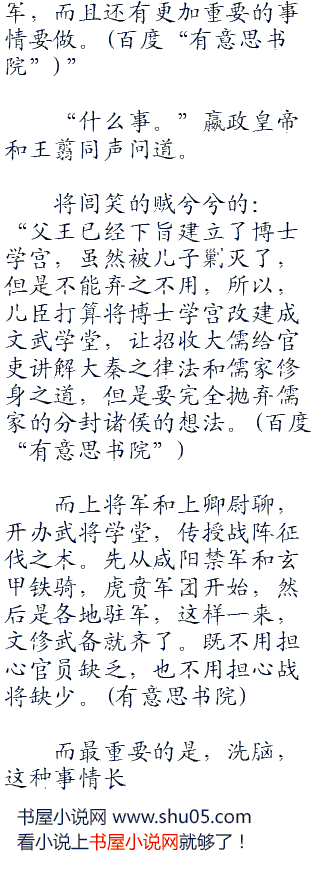 军，而且还有更加重要的事
情要做。(百度“有意思书
院”)”
“什么事。”嬴政皇帝
和王翦同声问道。
将闾笑的贼兮兮的：
“父王已经下旨建立了博士
学宫，虽然被儿子剿灭了，
但是不能弃之不用，所以，
儿臣打算将博士学宫改建成
文武学堂，让招收大儒给官
吏讲解大秦之律法和儒家修
身之道，但是要完全抛弃儒
家的分封诸侯的想法。(百度
“有意思书院”)
而上将军和上卿尉聊，
开办武将学堂，传授战阵征
伐之术。先从咸阳禁军和玄
甲铁骑，虎贲军团开始，然
后是各地驻军，这样一来，
文修武备就齐了。既不用担
心官员缺乏，也不用担心战
将缺少。(有意思书院)
而最重要的是，洗脑，
这种事情长
书屋小说网 www.shu05.com
看小说上书屋小说网就够了！